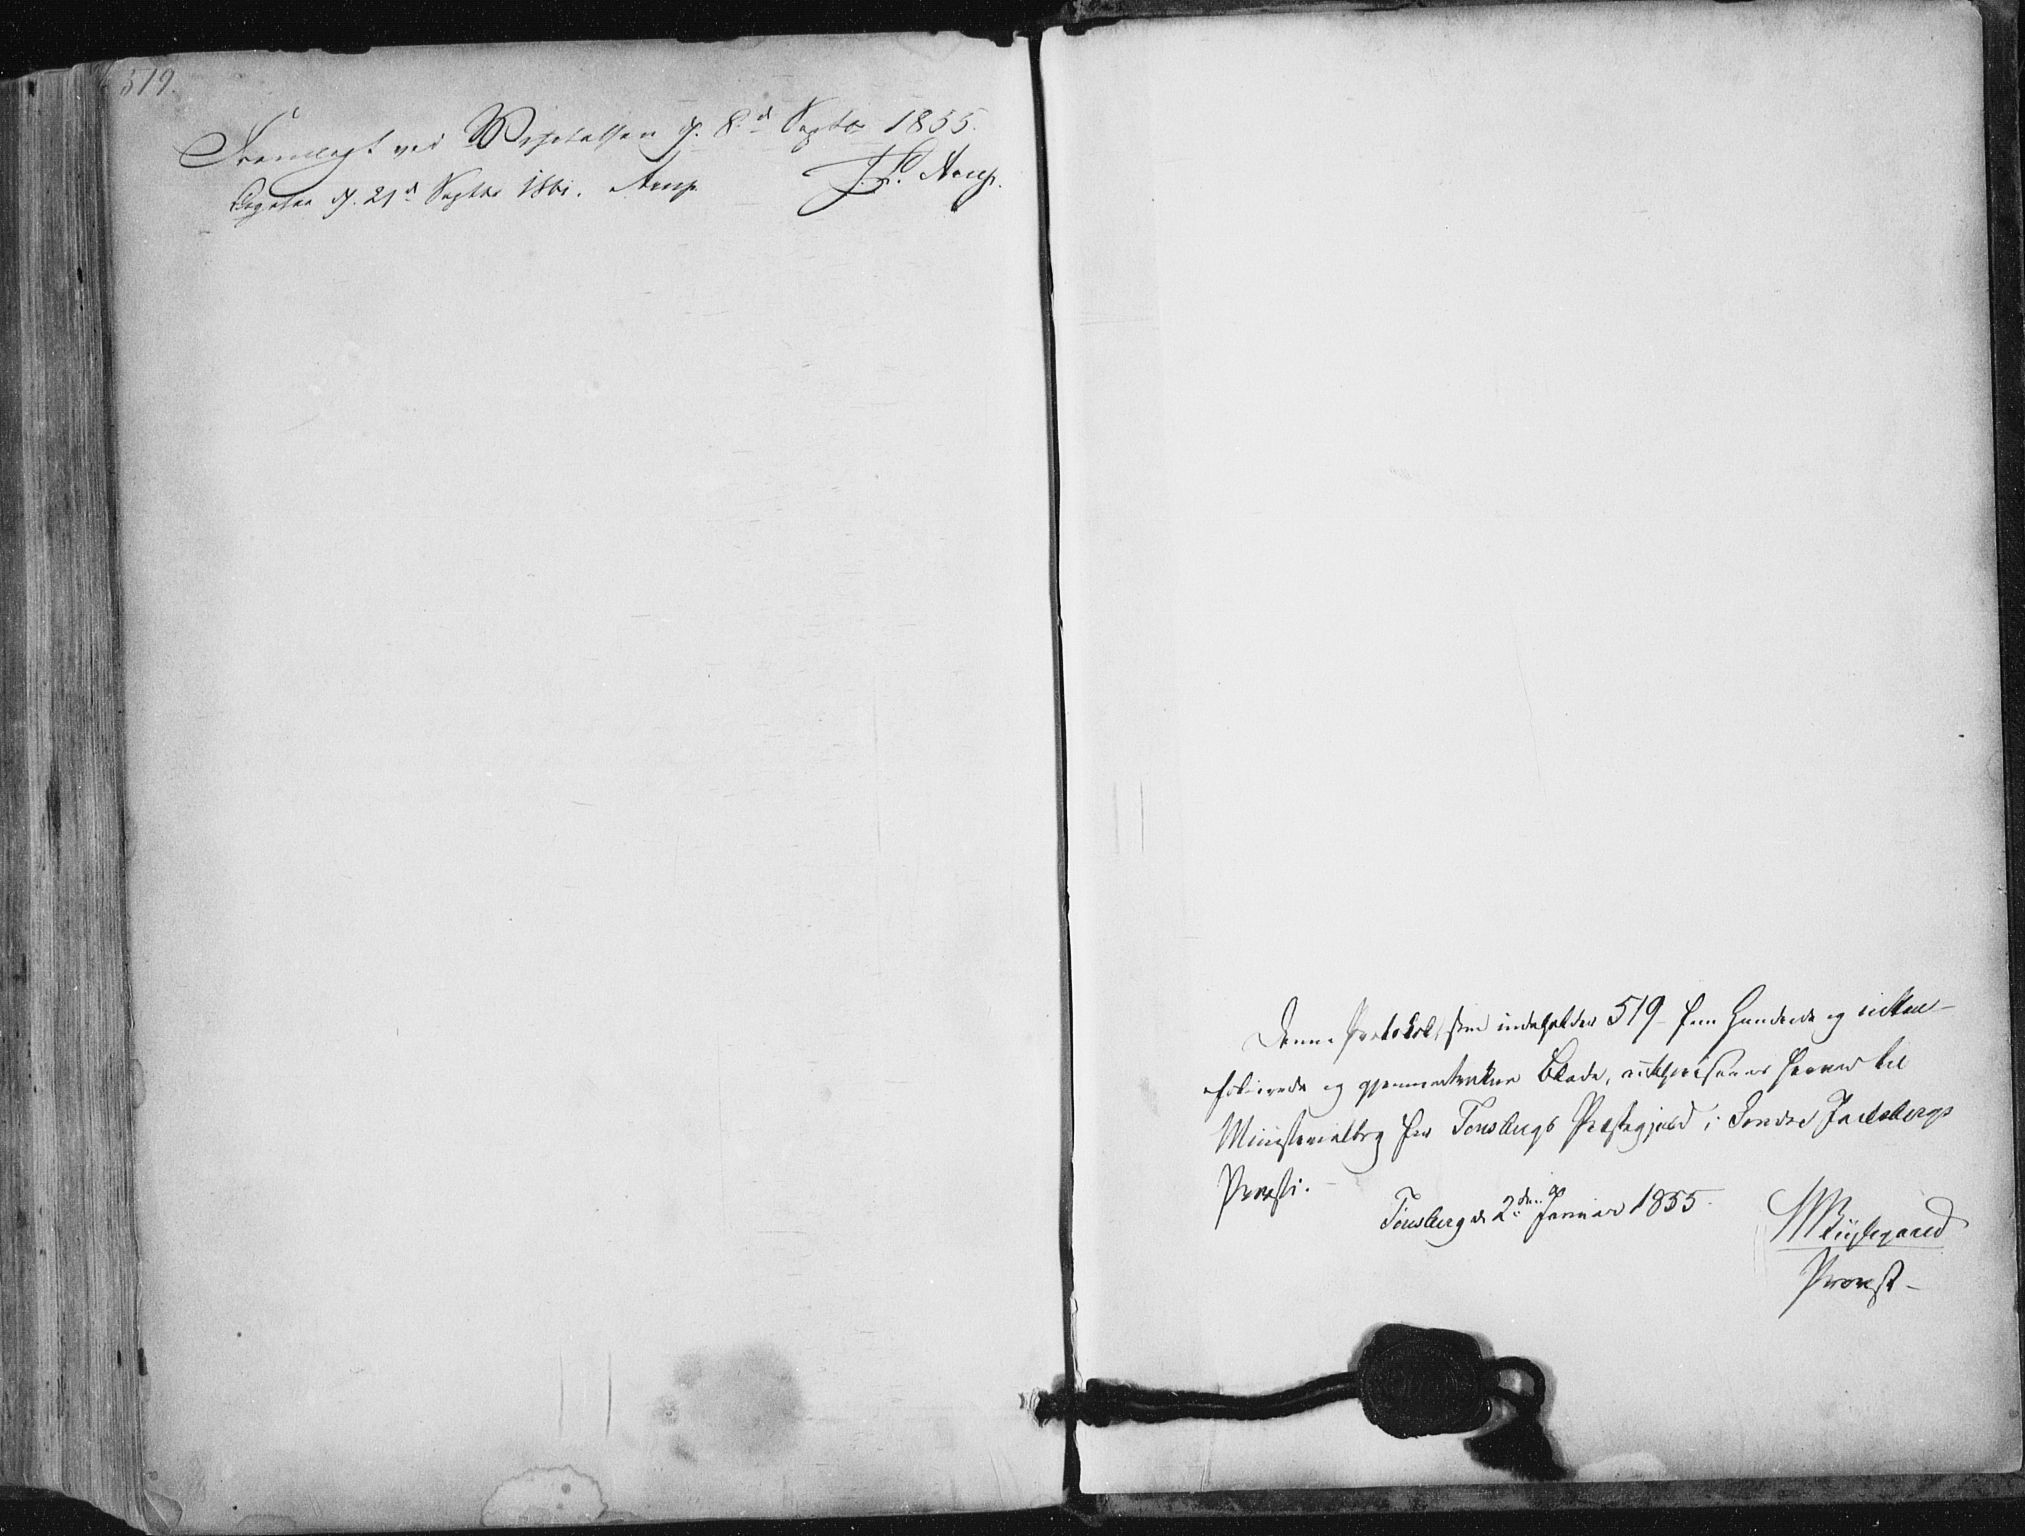 519.
Fremlagt ved Visitatsen d. 8d Septbr 1855.
J. L. Arup.
Ligesaa d. 21d Septbr 1861. Arup.
Denne Protokol, som indeholder 519 fem Hundrede og nitten
folierede og gjennemtrukne Blade, authoriseres herved til
Ministerialbog for Tønsbergs Præstegjeld i Søndre Jarlsbergs
Provsti.
Tønsberg d. 2den Januar 1855.
Provst